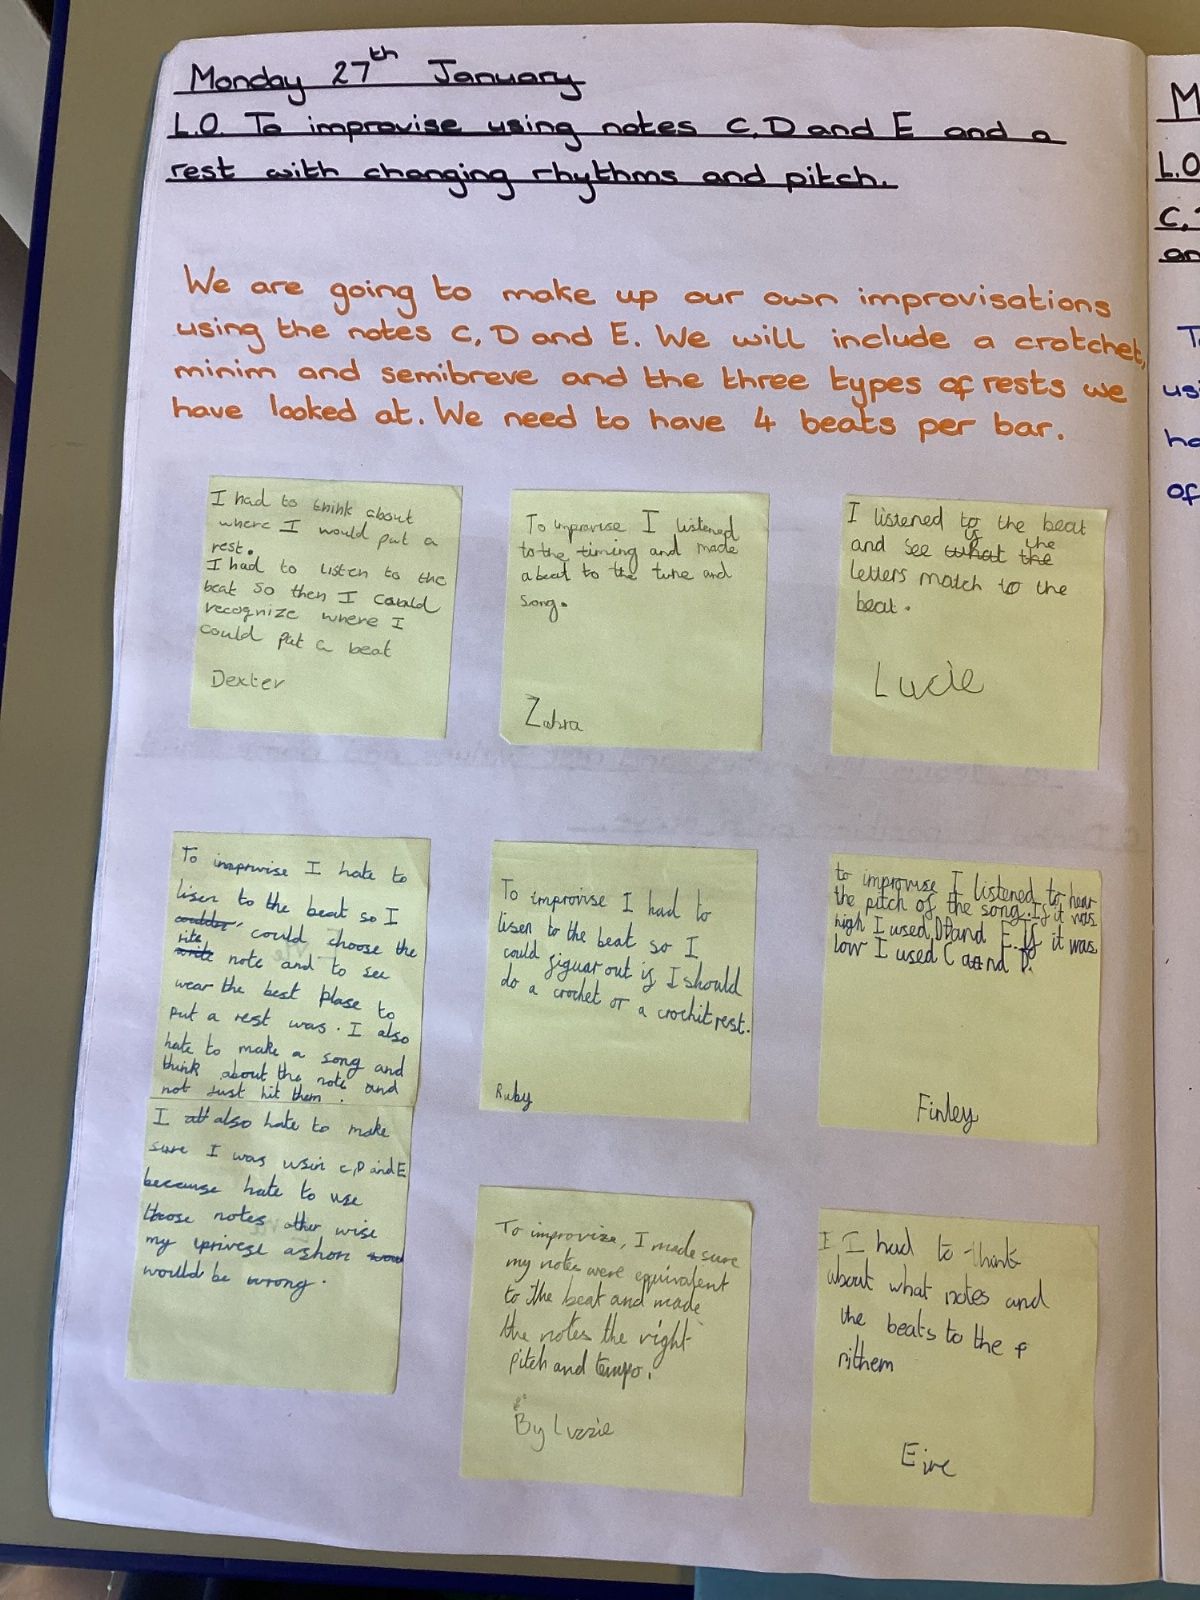 Monday 27th January
L.O. To improvise using notes C, D and E and a
rest with changing rhythms and pitch.
We are going to make up our own improvisations
using the notes C, D and E. We will include a crotchet,
minim and semibreve and the three types of rests we
have looked at. We need to have 4 beats per bar.
I had to think about
where I would put a
rest.
I had to listen to the
beat so then I could
recognize where I
could put a beat
Dexter
To improvise I listened
to the timing and made
a beat to the tune and
song.
Zahra
I listened to the beat
and see if the
letters match to the
beat.
Lucie
To imprwise I hate to
lisen to the beat so I
could choose the
rite note and to see
wear the best plase to
put a rest was. I also
hate to make a song and
think about the note and
not just hit them.
I also hate to make
sure I was usin C, D and E
because hate to use
those notes other wise
my iprivese ashon
would be wrong.
To improvise I had to
lisen to the beat so I
could figuar out if I should
do a crochet or a crochit rest.
Ruby
to improvise I listened to hear
the pitch of the song. If it was
high I used D and E. If it was
low I used C and D.
Finley
To improvize, I made sure
my notes were equivalent
to the beat and made
the notes the right
pitch and tempo.
By Luzzie
I I had to think
about what notes and
the beats to the
rithem
M
L.O
C,
an
T
usi
ha
of